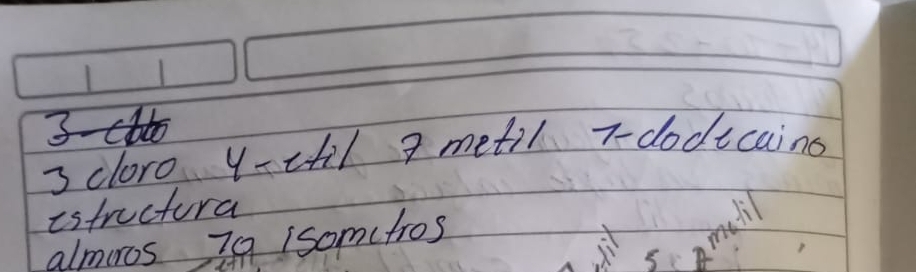 3-
3 cloro 4-etil 7 metil 1-dodecaino
estructura
almiros 10 isomitros
etil 5 7 metil